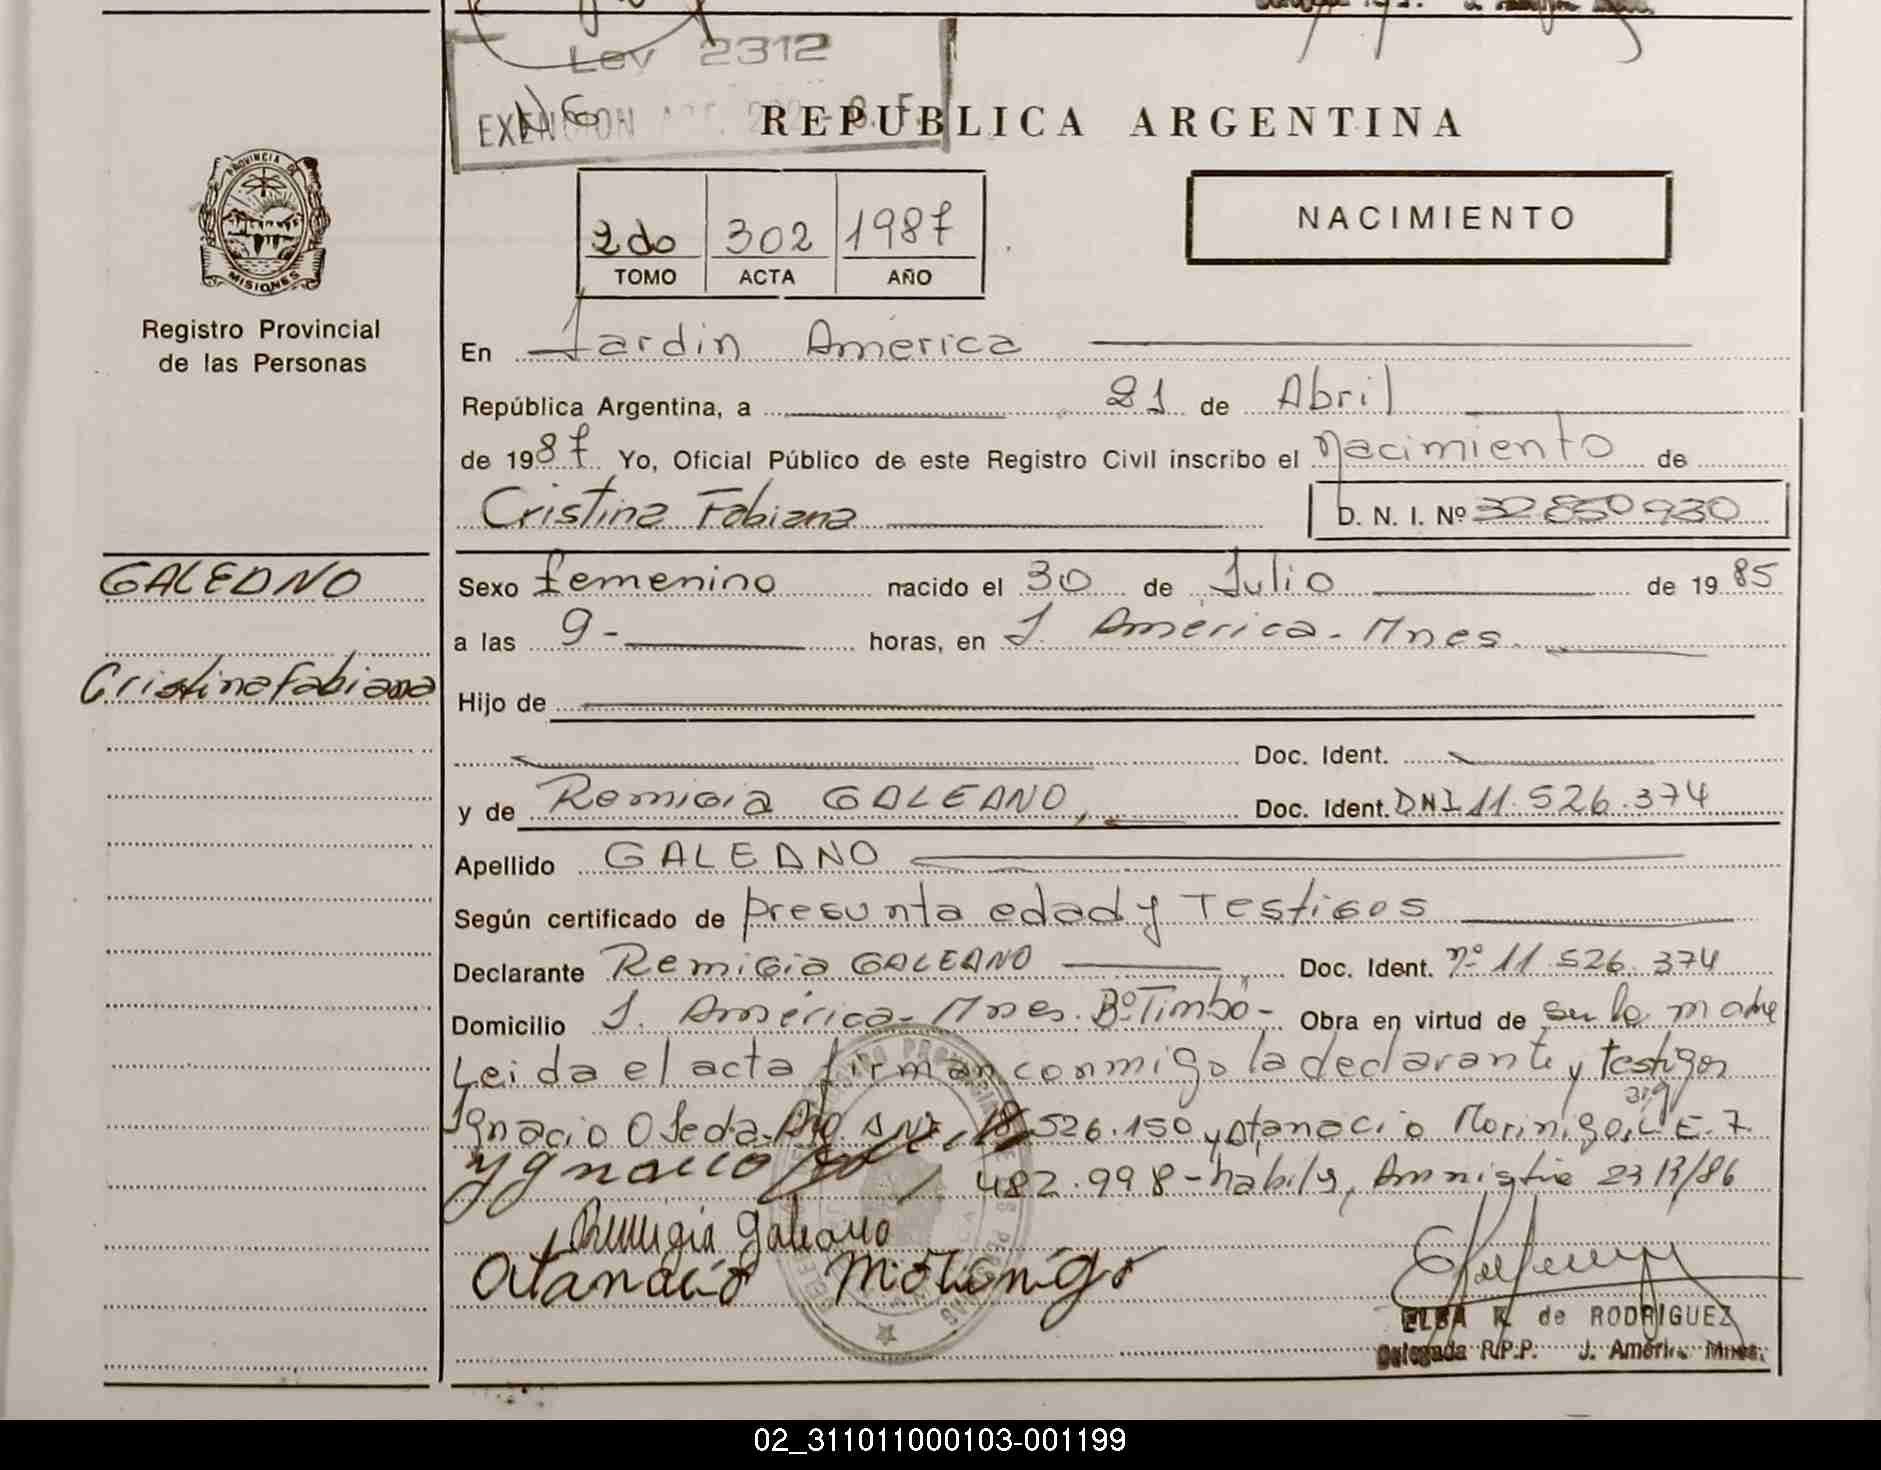 Ley 2312
EXENCION
REPUBLICA ARGENTINA
PROVINCIA DE
MISIONES
Registro Provincial
de las Personas
2do 302 1987
TOMO ACTA AÑO
NACIMIENTO
En Jardin América
República Argentina, a 21 de Abril
de 1987 Yo, Oficial Público de este Registro Civil inscribo el Nacimiento de
Cristina Fabiana D. N. I. Nº 32 850 930
GALEANO
Cristina Fabiana
Sexo femenino nacido el 30 de Julio de 1985
a las 9- horas, en J. América - Mnes.
Hijo de
Doc. Ident.
y de Remigia GALEANO, Doc. Ident. DNI 11.526.374
Apellido GALEANO
Según certificado de presunta edad y Testigos
Declarante Remigia GALEANO Doc. Ident. nº 11.526.374
Domicilio J. América - Mnes. Bº Timbó - Obra en virtud de ser la madre
Leida el acta firman conmigo la declarante y testigos
Ignacio Ojeda 526.150 y Atanacio Morinigo, L.E. 7.
arg
Ygnacio 482.998 - habiles, Amnistia 23 /86
Remigia Galeano
Atanacio Morinigo
ELSA K. de RODRIGUEZ
Delegada R.P.P. J. América Mnes.
02_311011000103-001199